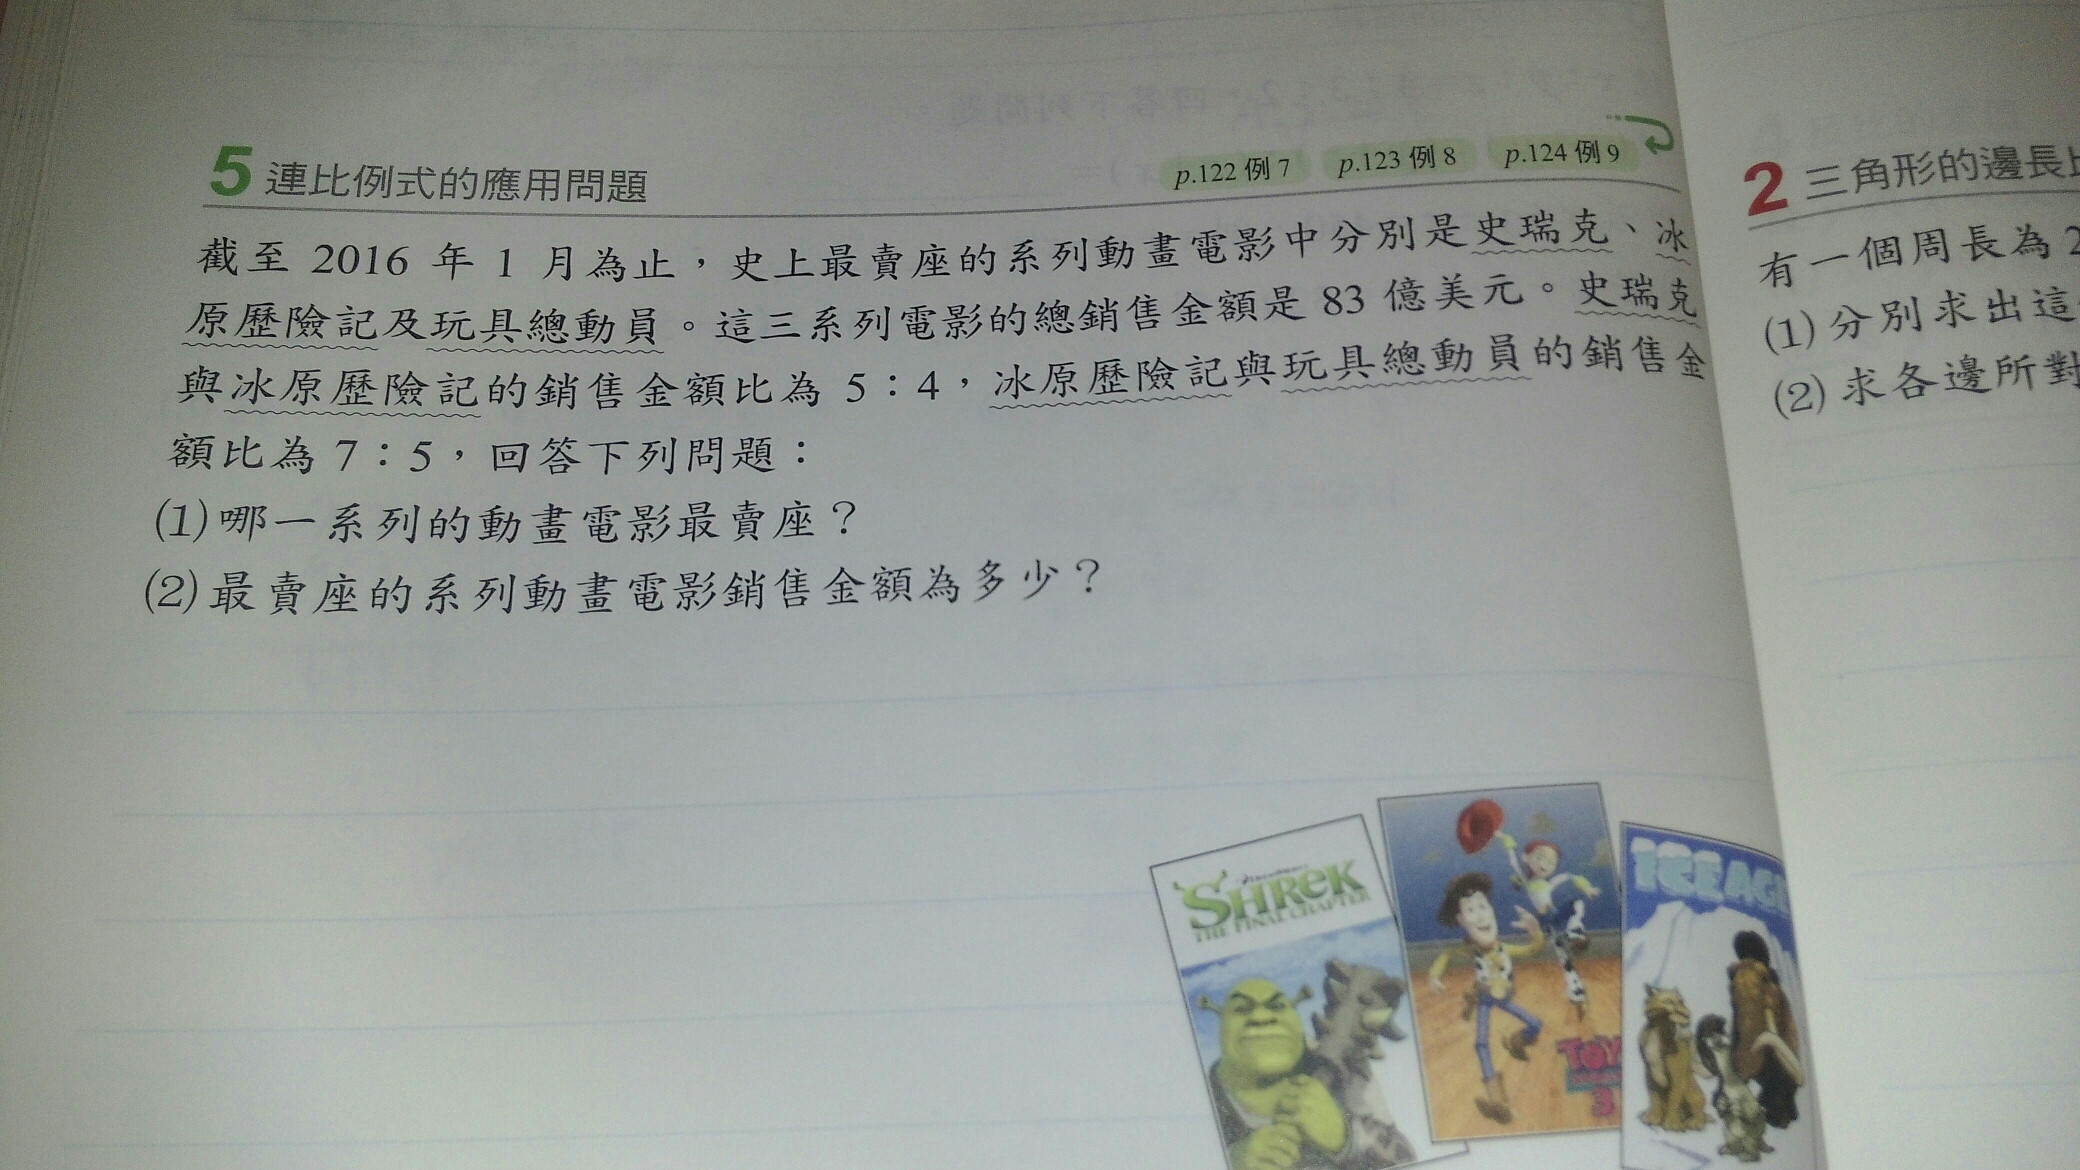 5 連比例式的應用問題
p.122 例 7 p.123 例 8 p.124 例 9
截至 2016 年 1 月為止，史上最賣座的系列動畫電影中分別是史瑞克、冰
原歷險記及玩具總動員。這三系列電影的總銷售金額是 83 億美元。史瑞克
與冰原歷險記的銷售金額比為 5：4，冰原歷險記與玩具總動員的銷售金
額比為 7：5，回答下列問題：
(1)哪一系列的動畫電影最賣座？
(2)最賣座的系列動畫電影銷售金額為多少？
SHREK
THE FINAL CHAPTER
TOY
3
ICE AGE
2 三角形的邊長
有一個周長為 2
(1)分別求出這
(2)求各邊所對